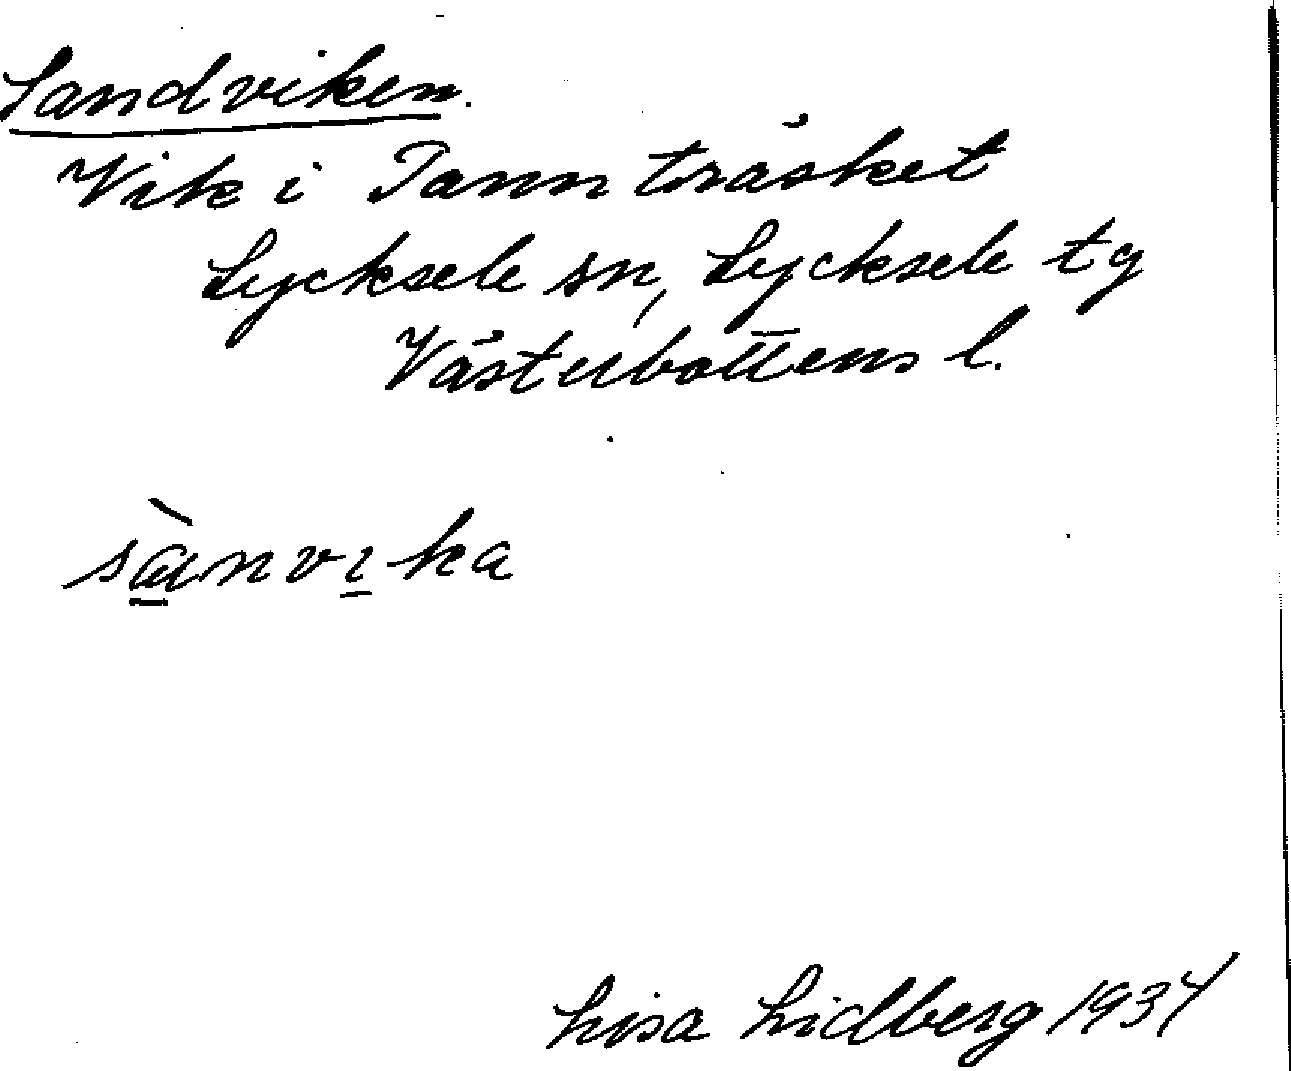 Sandviken.
Vik i Tannträsket
Lycksele sn, Lycksele tg
Västerbottens l.
sànvika
Lisa Lidberg 1934